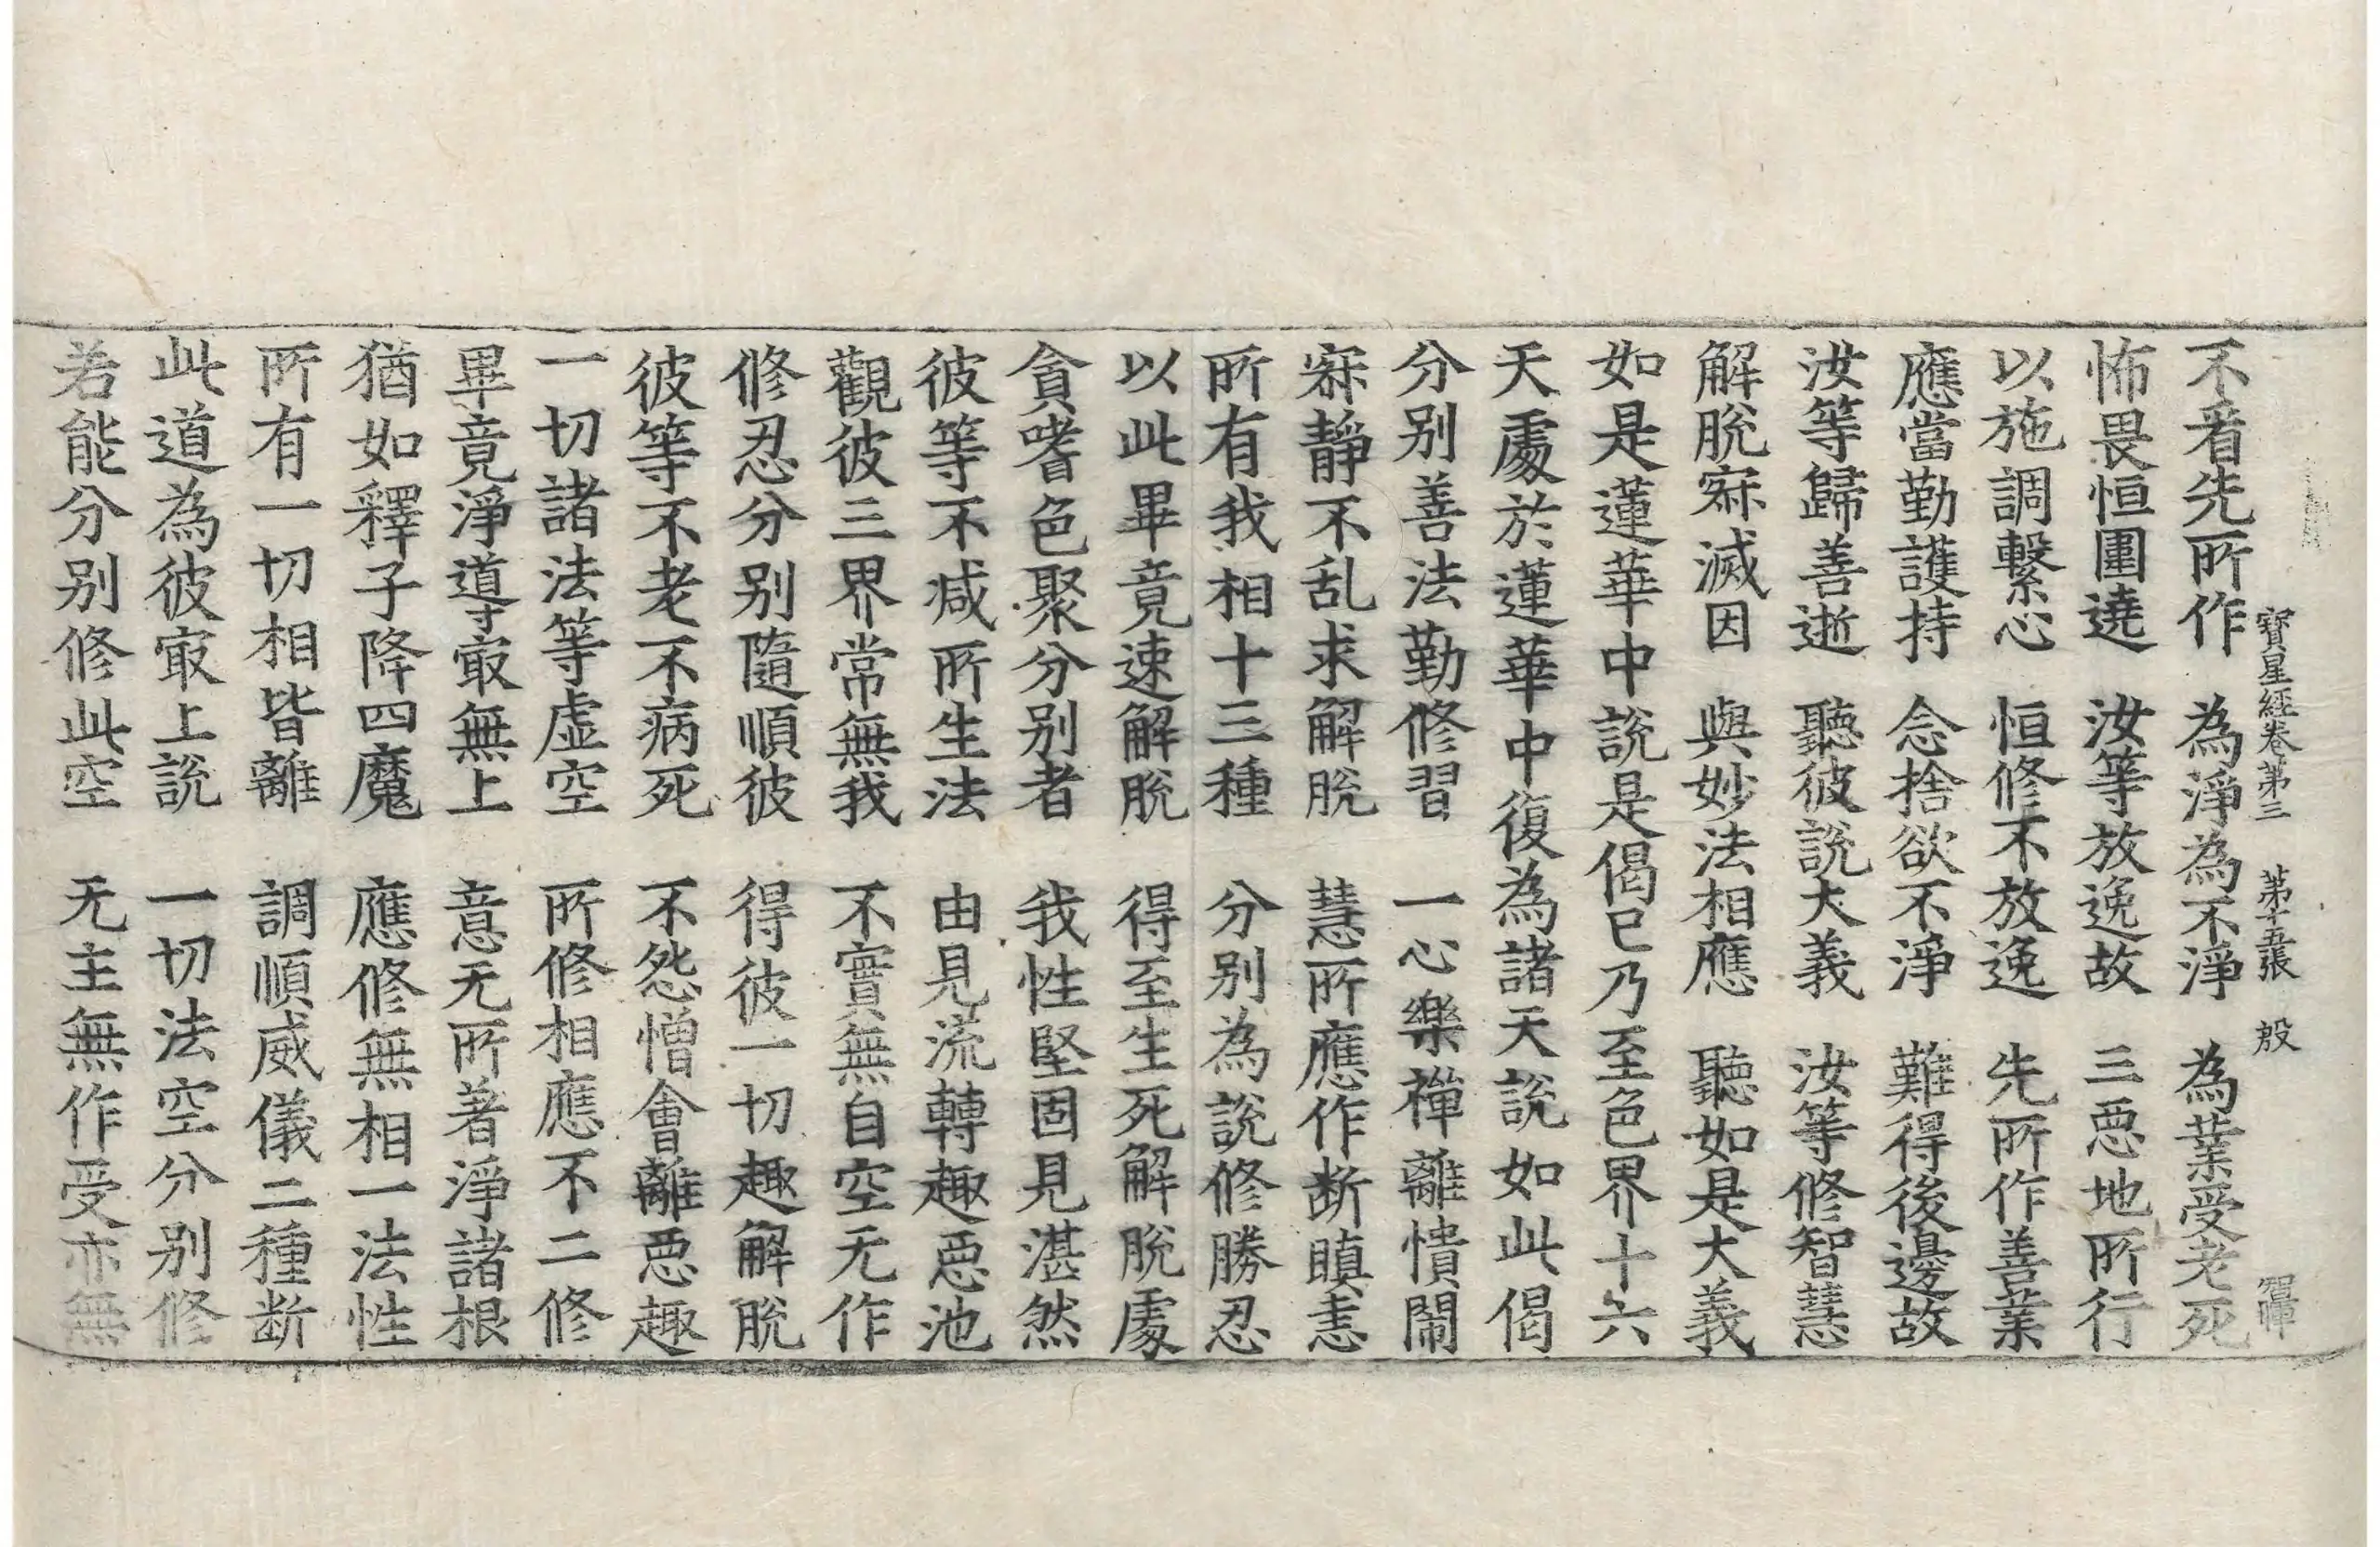 寶星經卷第三 第十五張 殷
不看先所作 為淨為不淨 為業受老死
怖畏恒圍遶 汝等放逸故 三惡地所行
以施調繫心 恒修不放逸 先所作善業
應當勤護持 念捨欲不淨 難得後邊故
汝等歸善逝 聽彼說大義 汝等修智慧
解脫寂滅因 與妙法相應 聽如是大義
如是蓮華中說是偈已乃至色界十六
天處於蓮華中復為諸天說如此偈
分別善法勤修習 一心樂禪離憒閙
寂靜不乱求解脫 慧所應作断瞋恚
所有我相十三種 分別為說修勝忍
以此畢竟速解脫 得至生死解脫處
貪嗜色聚分別者 我性堅固見湛然
彼等不減所生法 由見流轉趣惡池
觀彼三界常無我 不實無自空无作
修忍分別隨順彼 得彼一切趣解脫
彼等不老不病死 不怨憎會離惡趣
一切諸法等虛空 所修相應不二修
畢竟淨導㝡無上 意无所著淨諸根
猶如釋子降四魔 應修無相一法性
所有一切相皆離 調順威儀二種断
此道為彼㝡上說 一切法空分別修
若能分別修此空 无主無作受亦無